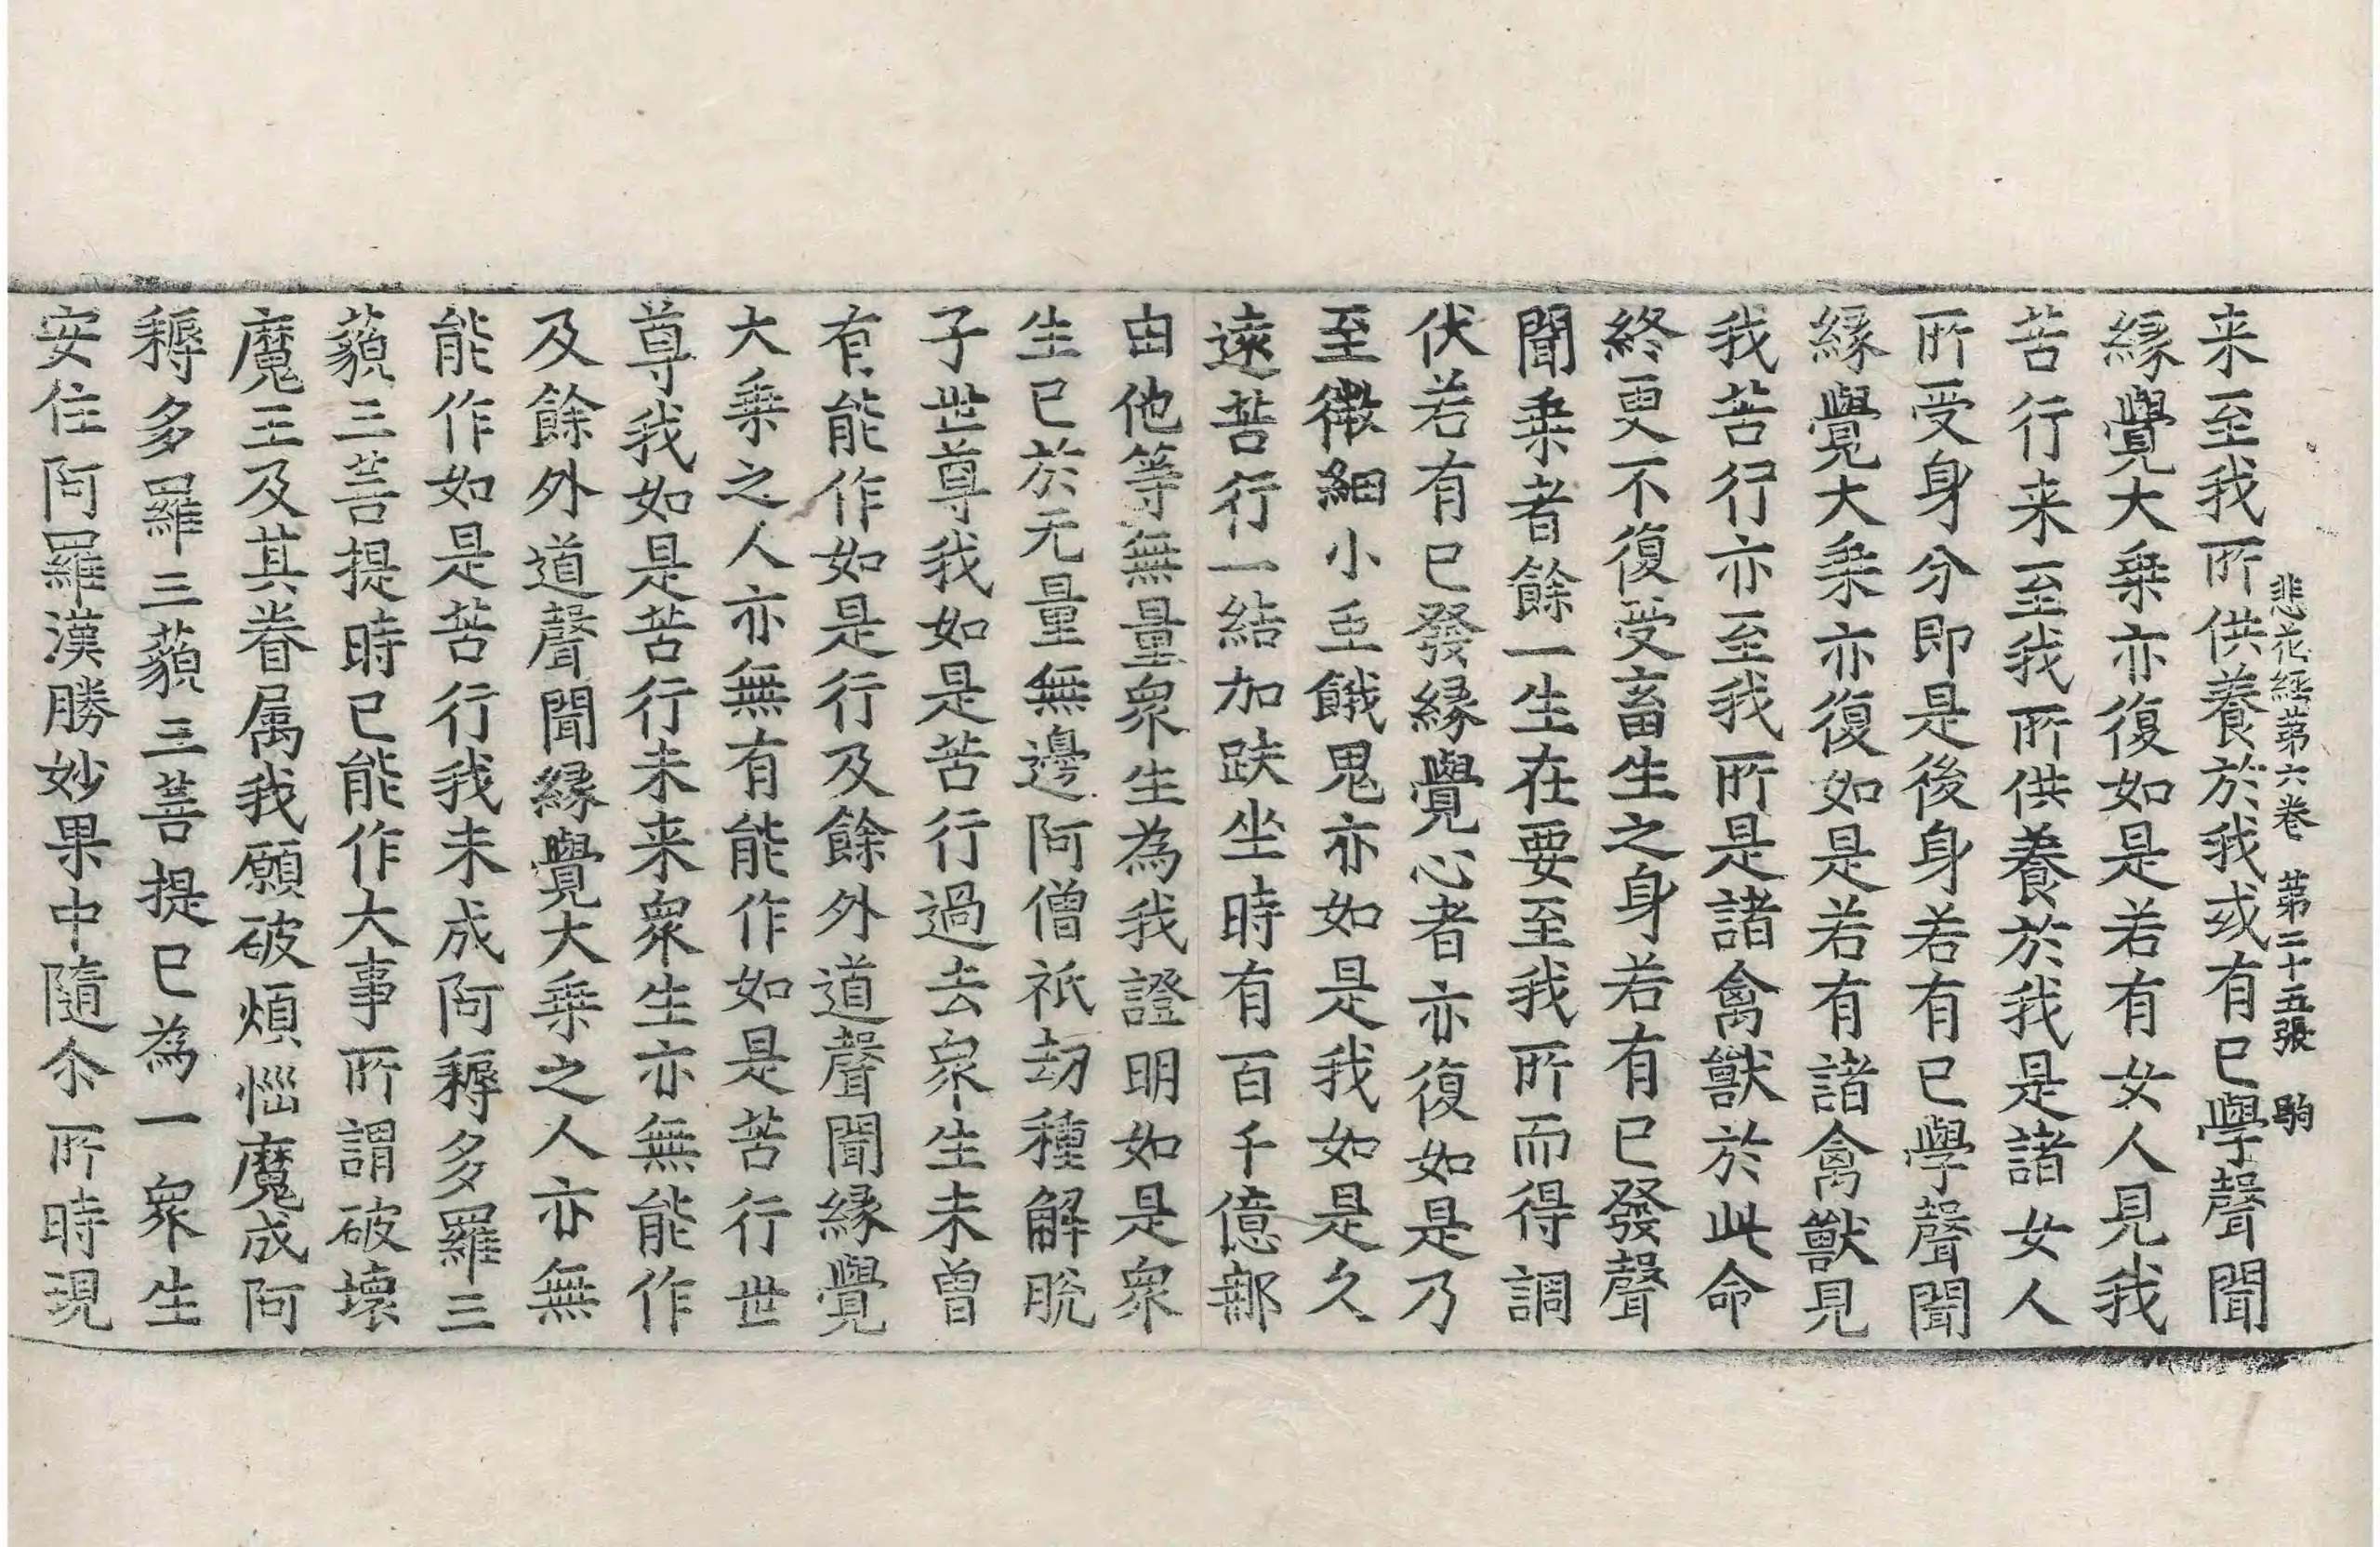 悲花經第六卷　第二十五張　駒
来至我所供養於我或有已學聲聞
縁覺大乗亦復如是若有女人見我
苦行来至我所供養於我是諸女人
所受身分即是後身若有已學聲聞
縁覺大乗亦復如是若有諸禽獸見
我苦行亦至我所是諸禽獸於此命
終更不復受畜生之身若有已發聲
聞乗者餘一生在要至我所而得調
伏若有已發縁覺心者亦復如是乃
至微細小䖝餓鬼亦如是我如是久
遠苦行一結加趺坐時有百千億鄣
由他等無量衆生為我證明如是衆
生已於无量無邊阿僧祇劫種解脫
子世尊我如是苦行過去衆生未曽
有能作如是行及餘外道聲聞縁覺
大乗之人亦無有能作如是苦行世
尊我如是苦行未来衆生亦無能作
及餘外道聲聞縁覺大乗之人亦無
能作如是苦行我未成阿耨多羅三
藐三菩提時已能作大事所謂破壞
魔王及其眷属我願破煩惱魔成阿
耨多羅三藐三菩提已為一衆生
安住阿羅漢勝妙果中隨尒所時現